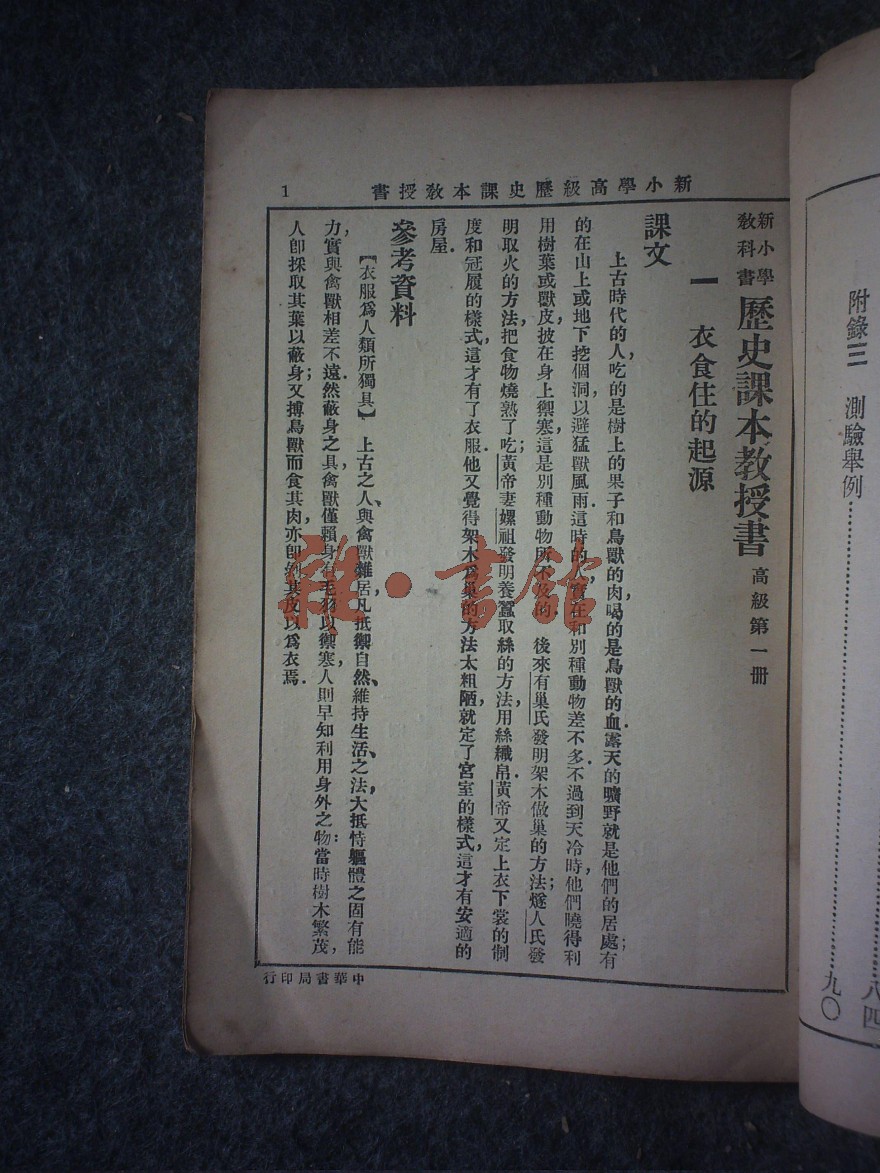 附錄三　測驗舉例……九〇
八四
新小學高級歷史課本教授書
1
新小學
教科書
歷史課本教授書　高級第一册
一　衣食住的起源
課文
上古時代的人，吃的是樹上的果子和鳥獸的肉，喝的是鳥獸的血．露天的曠野就是他們的居處；有
的在山上或地下挖個洞，以避猛獸風雨．這時的人，實在和別種動物差不多．不過到天冷時，他們曉得利
用樹葉或獸皮披在身上禦寒，這是別種動物所不及的．後來有巢氏發明架木做巢的方法；燧人氏發
明取火的方法，把食物燒熟了吃；黃帝妻嫘祖發明養蠶取絲的方法，用絲織帛．黃帝又定上衣下裳的制
度和冠履的樣式，這才有了衣服．他又覺得架木爲巢的方法太粗陋，就定了宮室的樣式，這才有安適的
房屋．
參考資料
【衣服爲人類所獨具】　上古之人，與禽獸雜居，凡抵禦自然、維持生活之法，大抵恃軀體之固有能
力，實與禽獸相差不遠．然蔽身之具，禽獸僅賴身有毛羽以禦寒，人則早知利用身外之物：當時樹木繁茂，
人卽採取其葉以蔽身；又搏鳥獸而食其肉，亦卽剝其皮以爲衣焉．
中華書局印行
雜·書館